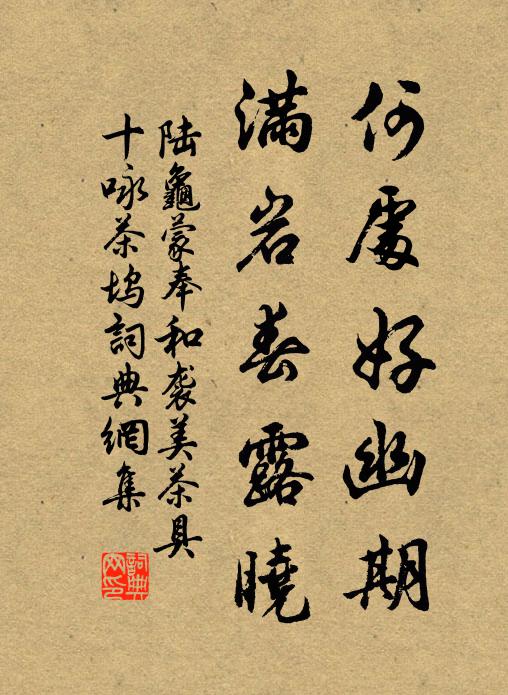 何處好幽期
滿岩春露曉
陸龜蒙奉和袭美茶具
十咏茶坞詞典網集
詞典网印